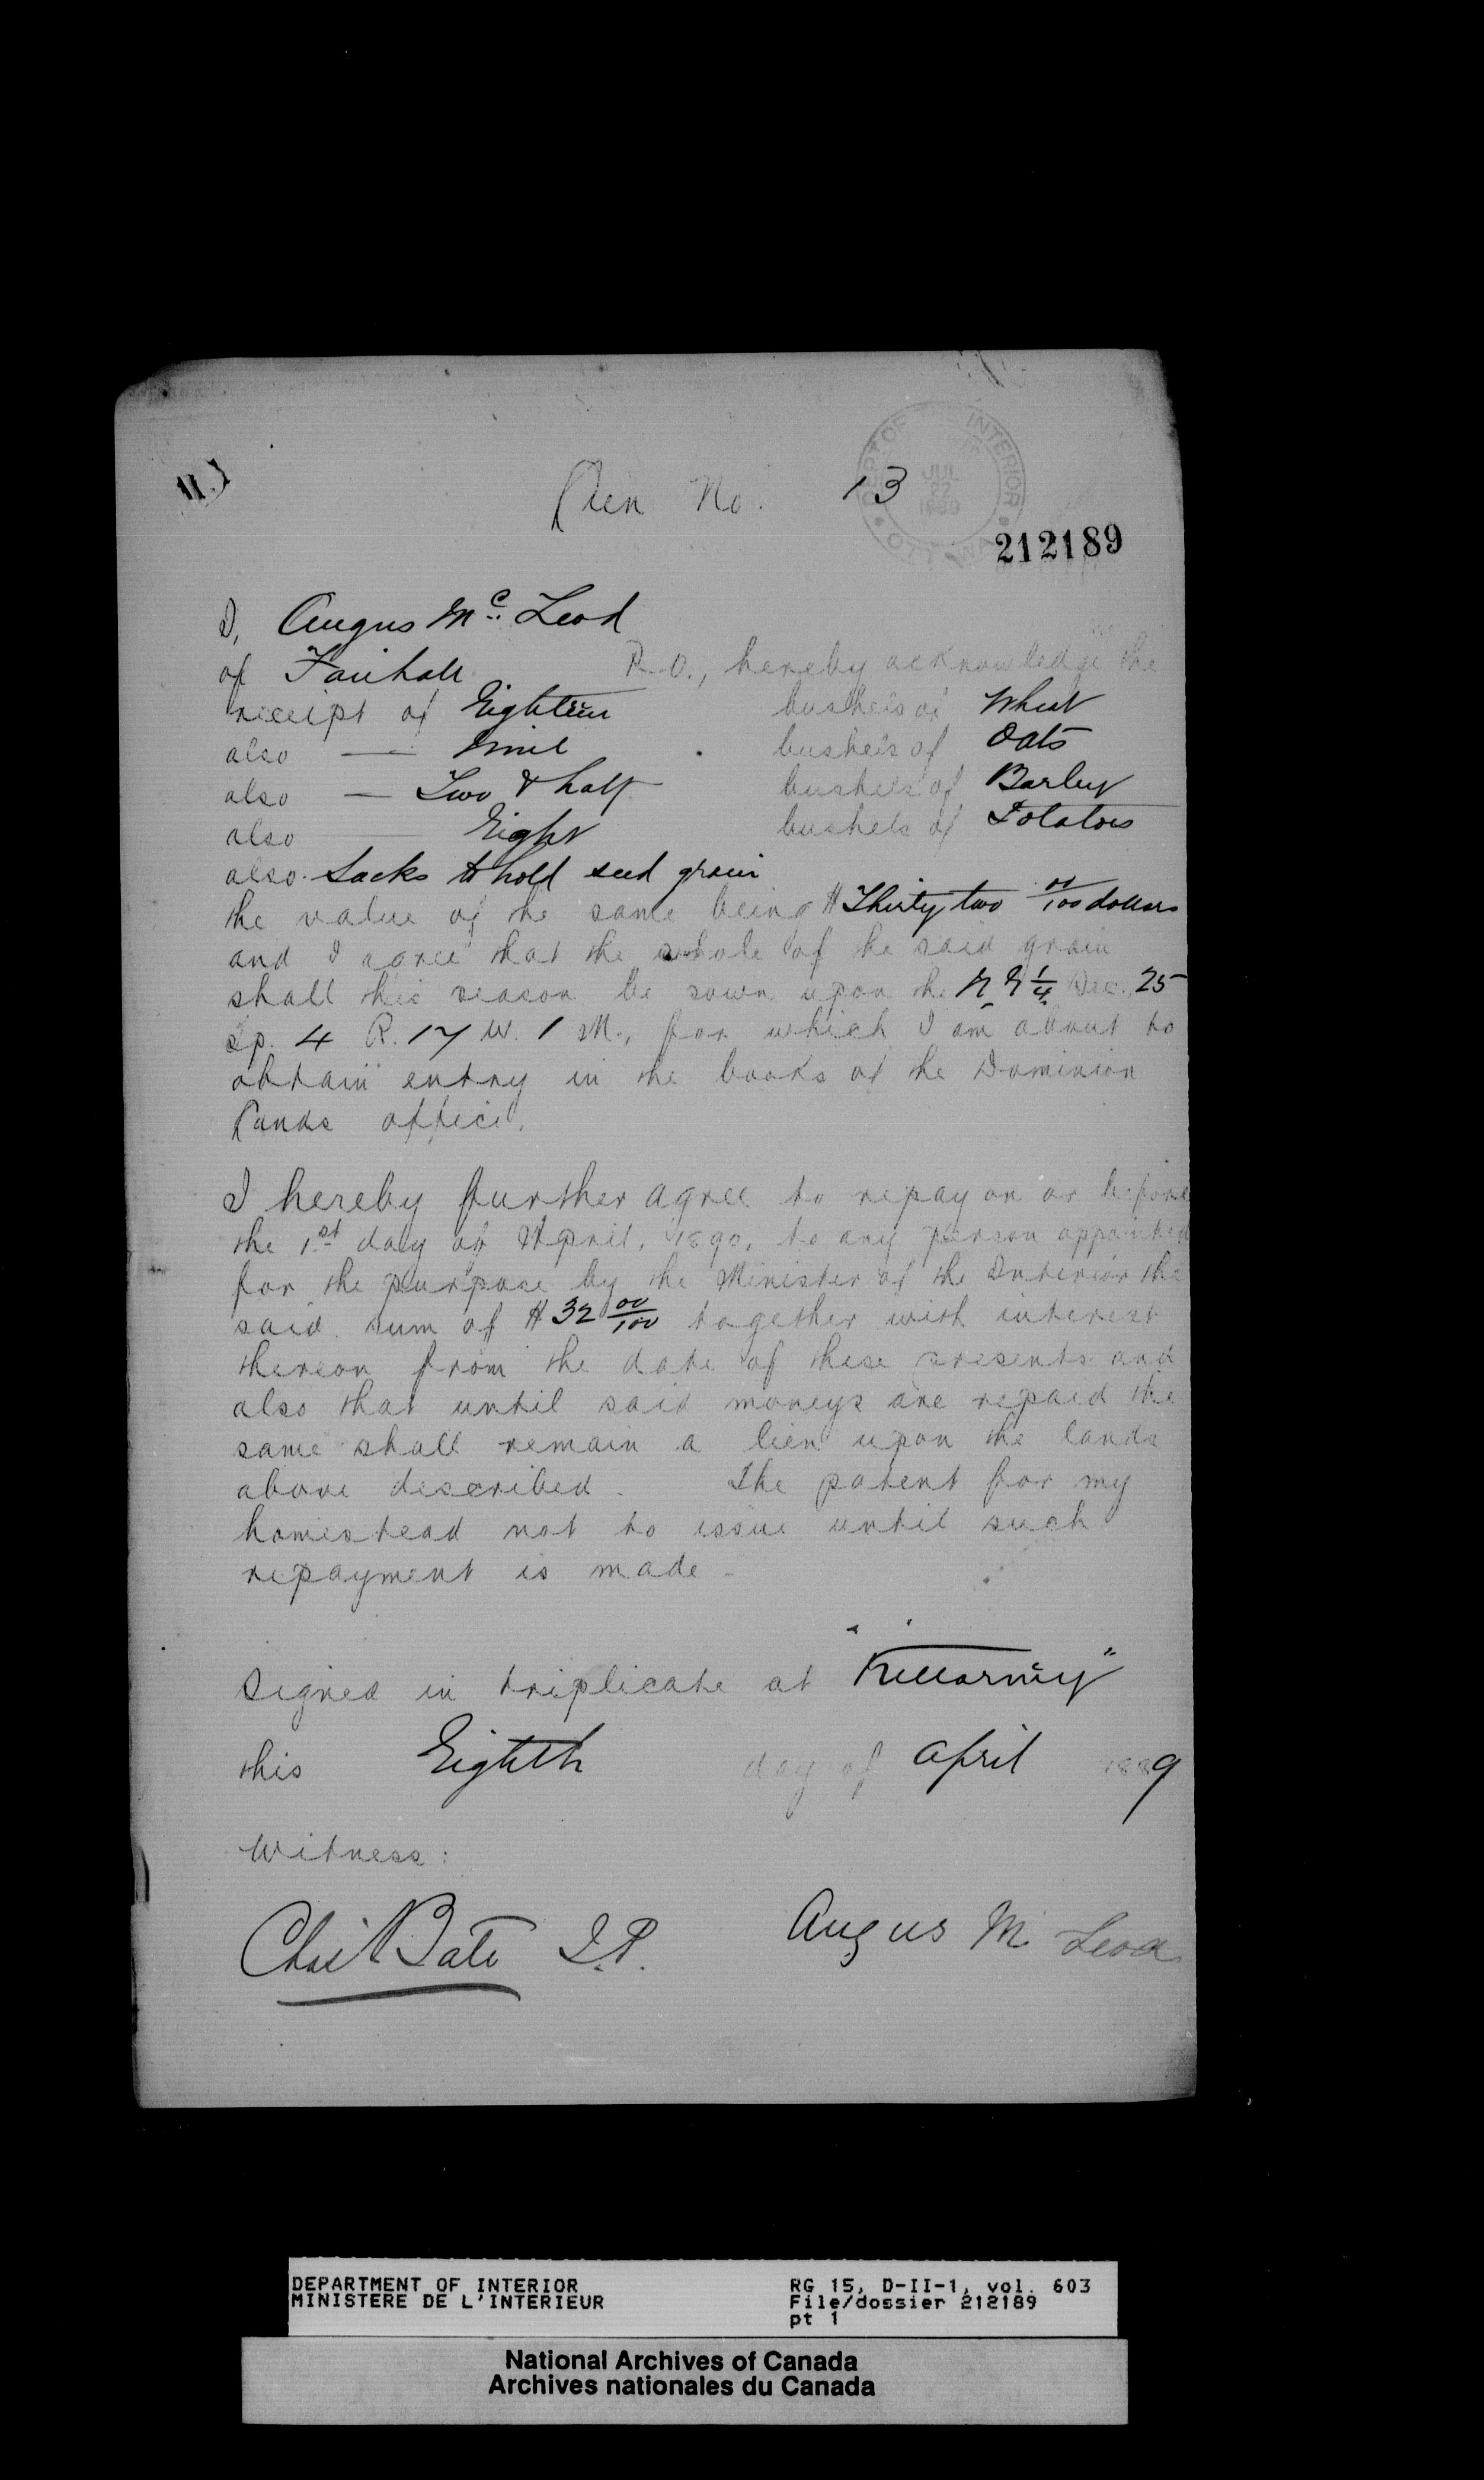 Lien No. 13
DEPT OF INTERIOR
JUL
22
1889
OTTAWA
212189
I, Angus Mc Leod
of Fairhall P.O., hereby acknowledge the
receipt of Eighteen bushels of Wheat
also — Nine bushels of Oats
also — Two & half bushels of Barley
also — Eight bushels of Potatoes
also Sacks to hold seed grain
the value of the same being $ Thirty two 00/100 dollars
and I agree that the whole of the said grain
shall this season be sown upon the N E 1/4 Sec. 25
Tp. 4 R. 17 W. 1 M., for which I am about to
obtain entry in the books of the Dominion
Lands office.
I hereby further agree to repay on or before
the 1st day of April, 1890, to any person appointed
for the purpose by the Minister of the Interior the
said sum of $ 32 00/100 together with interest
thereon from the date of these presents and
also that until said moneys are repaid the
same shall remain a lien upon the lands
above described. The patent for my
homestead not to issue until such
repayment is made -
Signed in triplicate at "Killarney"
this Eighth day of April 1889
Witness:
Chas Bate J.P. Angus Mc Leod
DEPARTMENT OF INTERIOR RG 15, D-II-1, vol. 603
MINISTERE DE L'INTERIEUR File/dossier 212189
pt 1
National Archives of Canada
Archives nationales du Canada